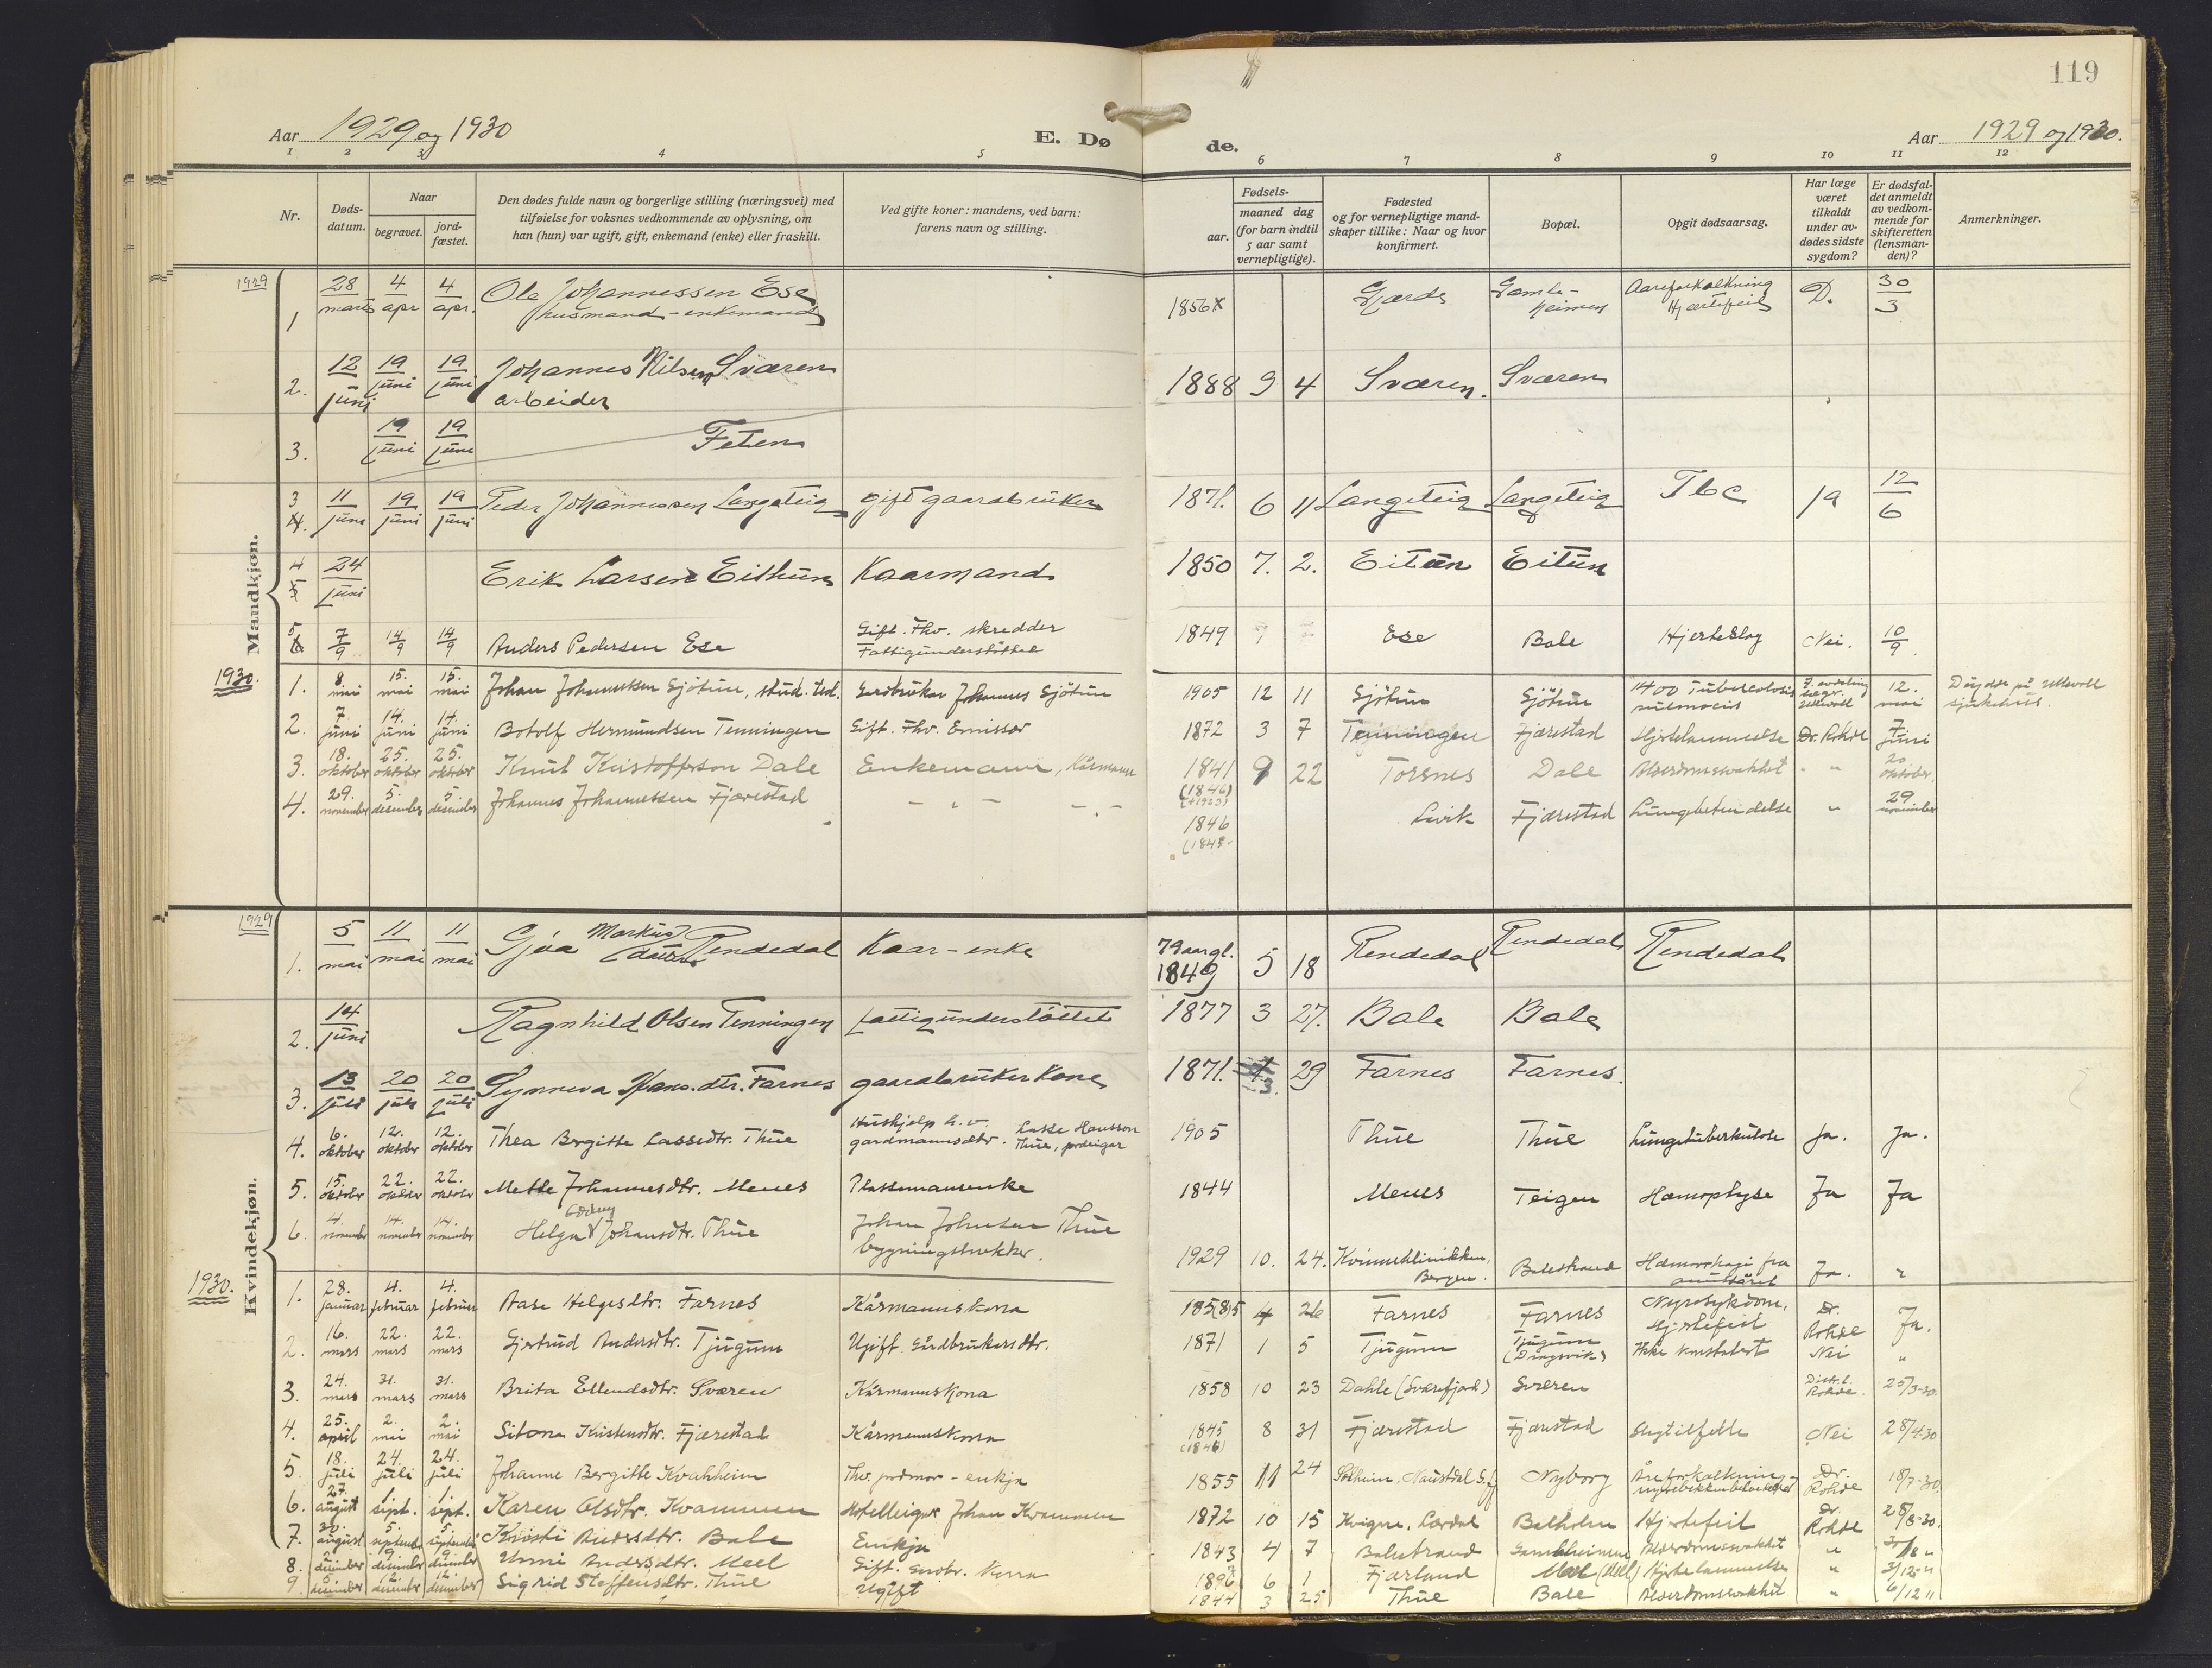 119
Aar 1929 og 1930
E. Dø
de.
Aar 1929 og 1930.
1 2 3 4 5 6 7 8 9 10 11 12
Nr.
Døds-
datum.
Naar
begravet.
jord-
fæstet.
Den dødes fulde navn og borgerlige stilling (næringsvei) med
tilføielse for voksnes vedkommende av oplysning, om
han (hun) var ugift, gift, enkemand (enke) eller fraskilt.
Ved gifte koner: mandens, ved barn:
farens navn og stilling.
Fødsels-
aar.
maaned dag
(for barn indtil
5 aar samt
vernepligtige).
Fødested
og for vernepligtige mand-
skaper tillike: Naar og hvor
konfirmert.
Bopæl.
Opgit dødsaarsag.
Har læge
været
tilkaldt
under av-
dødes sidste
sygdom?
Er dødsfal-
det anmeldt
av vedkom-
mende for
skifteretten
(lensman-
den)?
Anmerkninger.
Mandkjøn.
1929
1 28 mars 4 apr 4 apr. Ole Johannessen Ese husmand - enkemand 1856 Gjærde Gamle-heimen Aareforkalkning Hjærtefeil D. 30/3
2. 12 juni 19 juni 19 juni Johannes Nilsen Sværen arbeider 1888 9 4 Sværen. Sværen
3. 19 juni 19 juni Feten
3 4. 11 juni 19 juni 19 juni Peder Johannessen Langeteig gift gaardbruker 1871. 6 11 Langeteig Langeteig Tbc ja 12/6
4 5 24 juni Erik Larsen Eithun Kaarmand 1850 7. 2. Eitun Eitun
5 6 7/9 14/9 14/9 Anders Pedersen Ese Gift. Fhv. skredder Fattigunderstöttet 1849 Ese Bale Hjerteslag Nei. 10/9.
1930.
1. 8. mai 15. mai 15. mai Johan Johannessen Sjötun, stud. Gardbruker Johannes Sjötun 1905 12 11 Sjötun Sjötun 1400 Tuberculosis pulmonis Ullevoll 12. mai Döydde på Ullevoll sjukehus.
2. 7. juni 14. juni 14. juni Botolf Hermundsen Tenningen Gift. Fhv. Emissær 1872 3 7 Tenningen Fjærestad Hjertelammelse Dr. Rohde 7 juni
3. 18. oktober 25. oktober 25. oktober Knut Kristoffersson Dale Enkemann, Kårmann 1841 (1846) 9 22 Torsnes Dale Alderdomssvakhet " 20 oktober.
4. 29. november 5. desember 5. desember Johannes Johannessen Fjærestad - " - - " - 1846 (1845 Lavik Fjærestad Lungebetendelse " 29 november
Kvindekjøn.
1929
1. 5 mai 11 mai 11 mai Gjøa Markusdatter Rendedal Kaar-enke 79 aar gl. 1849 5 18 Rendedal Rendedal Rendedal
2. 14 juni Ragnhild Olsen Tenningen fattigunderstöttet 1877 3 27. Bale Bale
3. 13 juli 20 juli 20 juli Synneva Hans.dtr. Farnes gaardbruker Kone 1871. 3. 29 Farnes Farnes.
4. 6. oktober 12. oktober 12. oktober Thea Bergitte Lassedtr. Thue Hushjelp h.v. gardmannsdtr. Lasse Hansson Thue, 1905 Thue Thue Lungetuberkulose Ja. Ja.
5. 15. oktober 22. oktober 22. oktober Mette Johannesdtr. Menes Plassmannsenke 1844 Menes Teigen Hæmoptyse Ja Ja
6. 4. november 14. november 14. november Helga Johansdtr. Thue Johan Johnsen Thue bygningssnekker. 1929 10. 24. Kvinneklinikken, Bergen. Balestrand Ja. "
1930.
1. 28. januar 4. februar 4. februar Aase Helgesdtr. Farnes Kårmannskona 4 26 Farnes Farnes Nyresykdom, Hjertefeil Dr. Rohde Ja.
2. 16. mars 22. mars 22. mars Gjertrud Andersdtr. Tjugum Ugift. Gårdbrukersdtr. 1871 1 5 Tjugum Tjugum (Dragsvik) Ikke konstatert Nei "
3. 24. mars 31. mars 31. mars Brita Ellendsdtr. Sværen Kårmannskona 1858 10 23 Dahle (Sværefjord) Sværen Distr.l. Rohde. 25/3-30.
4. 25. april 2. mai 2. mai Sitona Kristensdtr. Fjærestad Kårmannskona 1845 (1846) 8 31 Fjærestad Fjærestad Slagtilfelle Nei 28/4.30
5. 18. juli 24. juli 24. juli Johanne Bergitte Kvahheim Fhv. jordmor - enkja 1855 11 24 Solheim, Naustdal S.f. Nyborg Åreforkalkning - Dr. Rohde 18/7-30.
6. 27. august 1. sept. 1. sept. Karen Olsdtr. Kvammen Hotelleigar Johan Kvammen 1872 10 15 Kvigne, Lærdal Balholm Hjertefeil Dr. Rohde 28/8-30.
7. 30. august 5. september 5. september Kristi Andersdtr. Bale Enkja 1843 4 7 Balestrand Gamleheimen Alderdomssvakhet " 30/8 "
8. desember 9. desember 9. desember Unni Andersdtr. Meel Gift. Gardbr. Kona 6 1 Fjærland Meel (Mel) Hjertelammelse " 3/12-"
9. 5. desember 12. desember 12. desember Sigrid Steffensdtr. Thue Ugift 1844 3 25 Thue Bale Alderdomssvakhet " 6/12 "